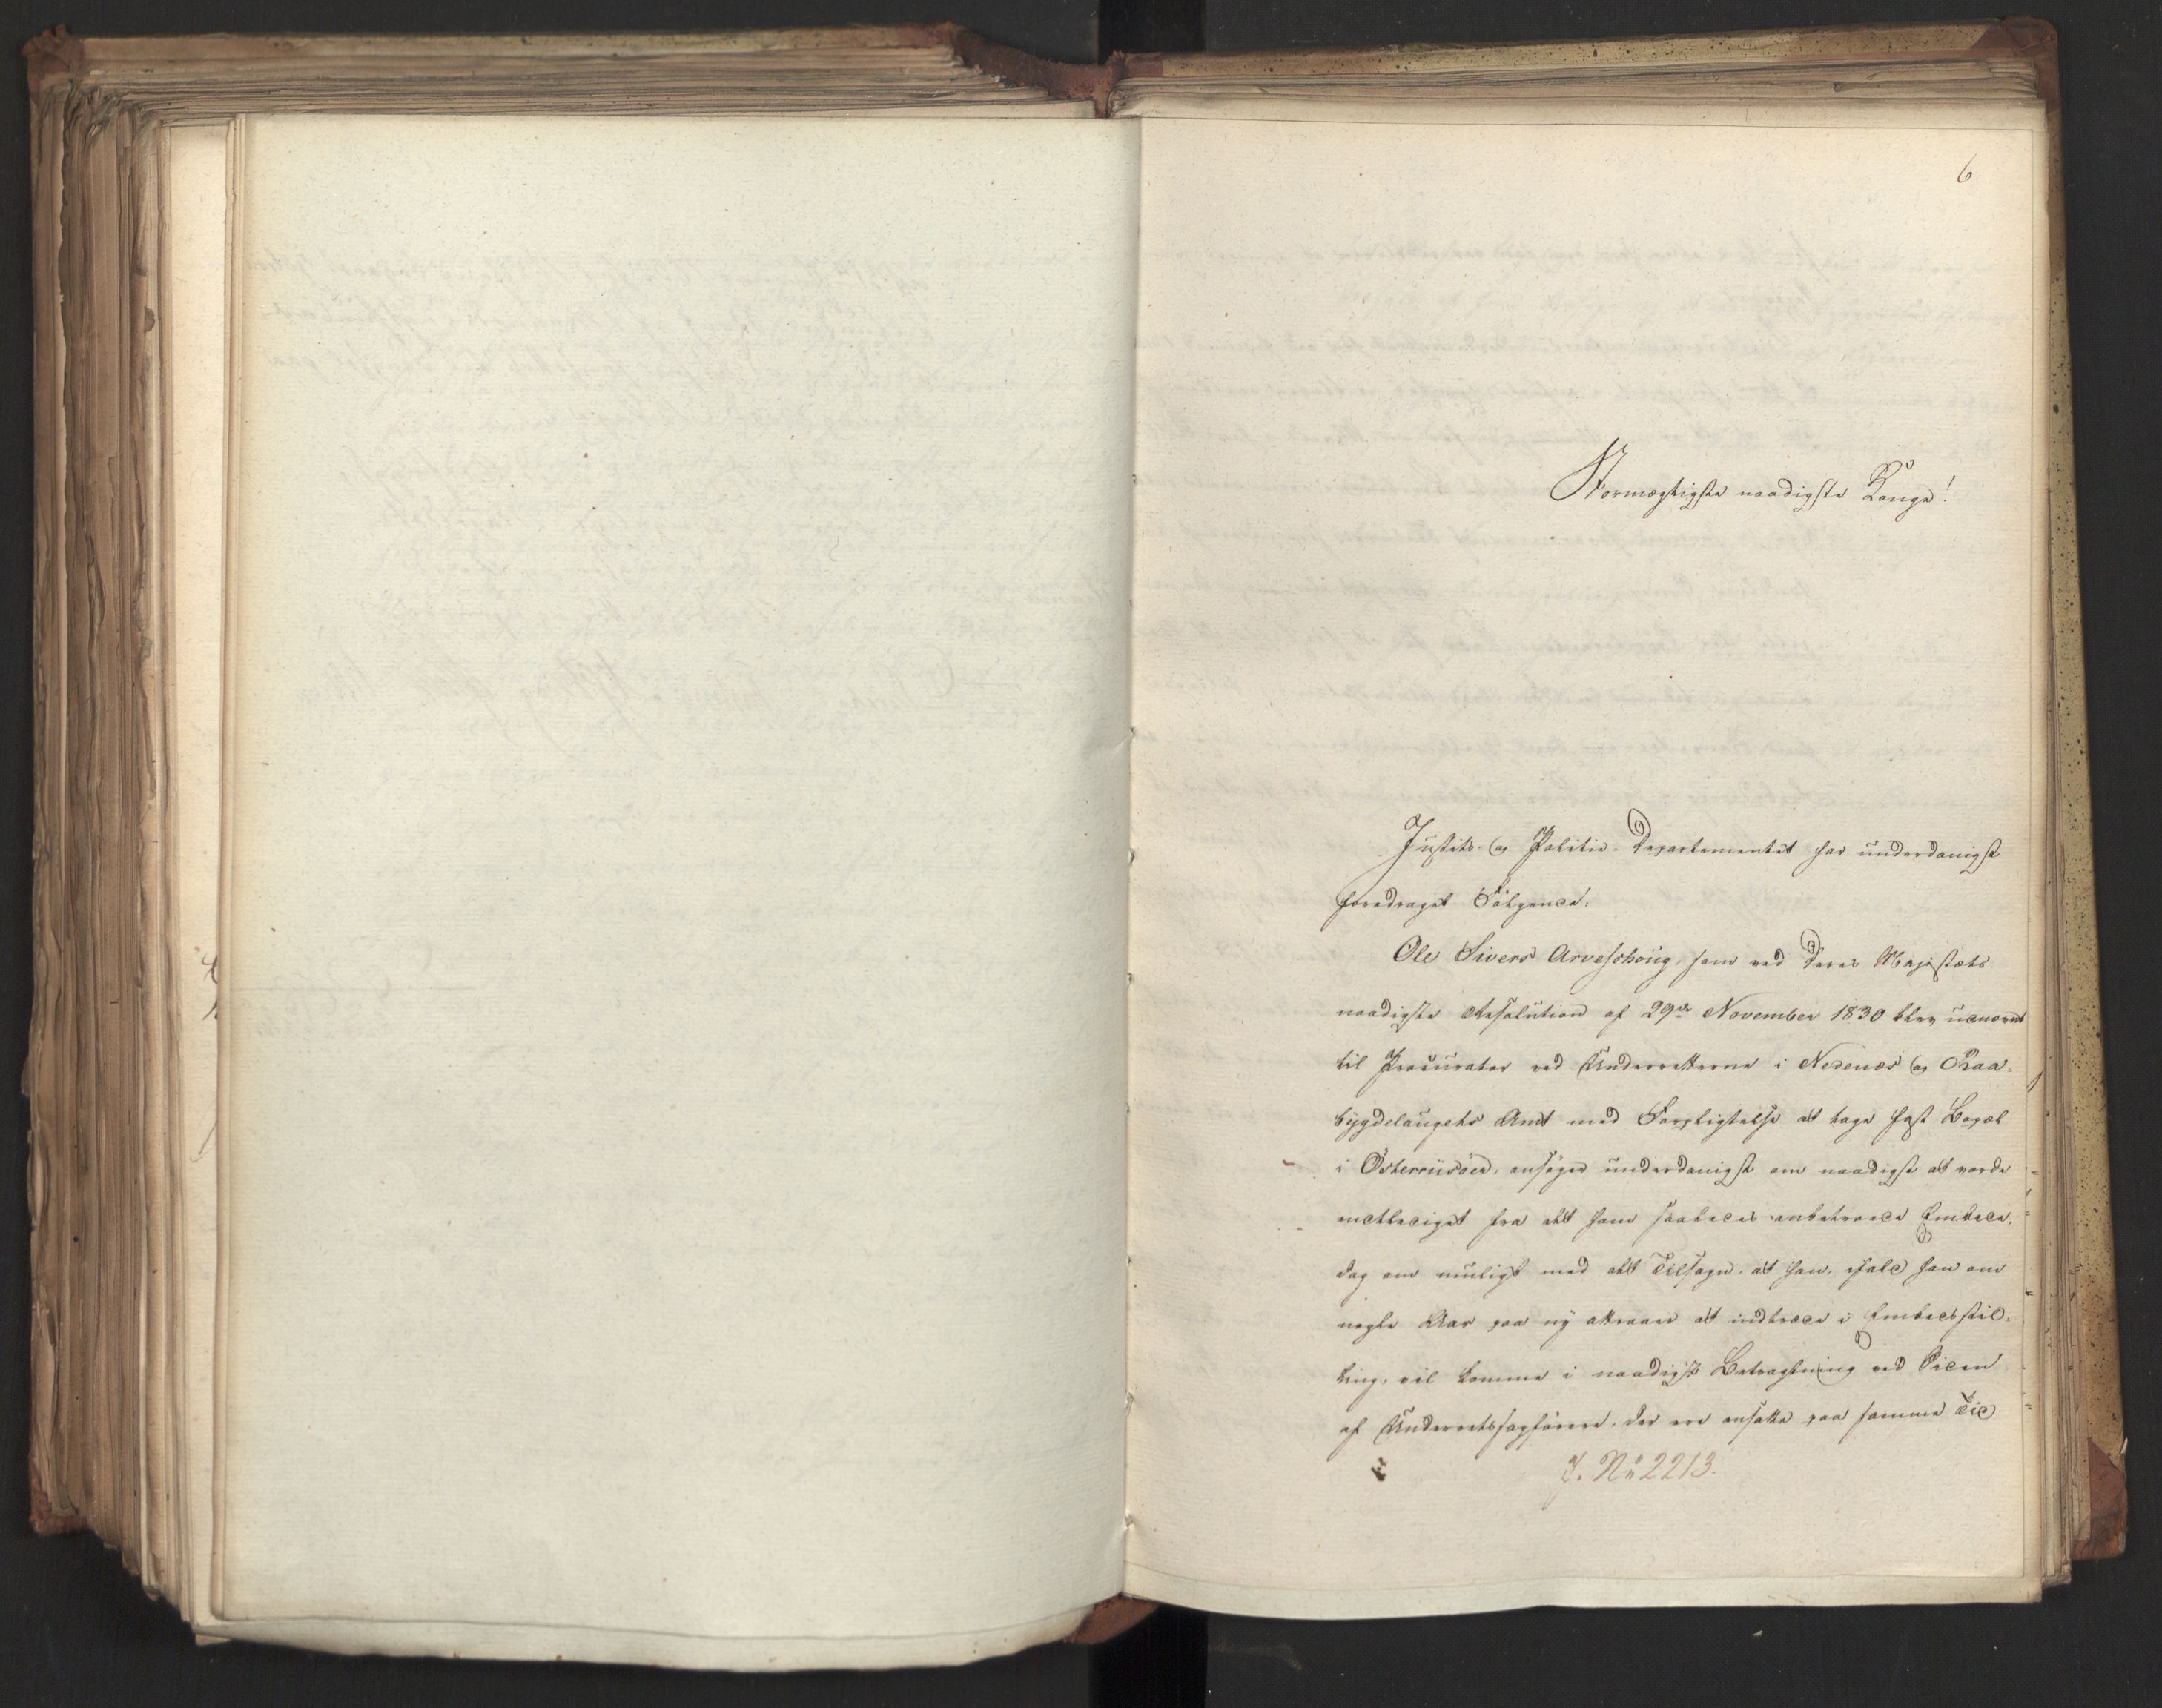 6
Stormægtigste naadigste Konge!
Justits- og Politie-Departementet har underdanigst
foredraget Følgende:
Ole Sivers Arveschoug, som ved Deres Majestæts
naadigste Resolution af 29de November 1830 blev udnævnt
til Procurator ved Underretterne i Nedenæs og Raa-
bygdelaugets Amt med Forpligtelse at tage fast Bopæl
i Østerriisöer, ansøger underdanigst om naadigst at vorde
entlediget fra det ham saaledes anbetroede Embede,
dog om muligt med det Tilsagn, at han, ifald han om
nogle Aar paa ny attraaer at indtræde i Embedsstil-
ling, vil komme i naadigst Betragtning ved Siden
af Underretssagførere, der ere ansatte paa samme Tid
J. No 2213.